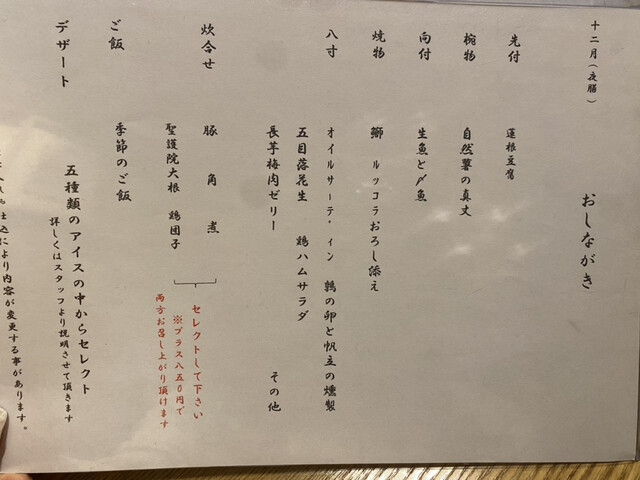 十二月(夜膳)
おしながき
先付 蓮根豆腐
椀物 自然薯の真丈
向付 生魚と〆魚
焼物 鰤 ルッコラおろし添え
八寸 オイルサーディン 鶉の卵と帆立の燻製
五目落花生 鶏ハムサラダ
長芋梅肉ゼリー その他
炊合せ 豚角煮
聖護院大根 鶏団子
セレクトして下さい
※プラス八五0円で
両方お召し上がり頂けます
ご飯 季節のご飯
デザート 五種類のアイスの中からセレクト
詳しくはスタッフより説明させて頂きます
仕込により内容が変更する事があります。